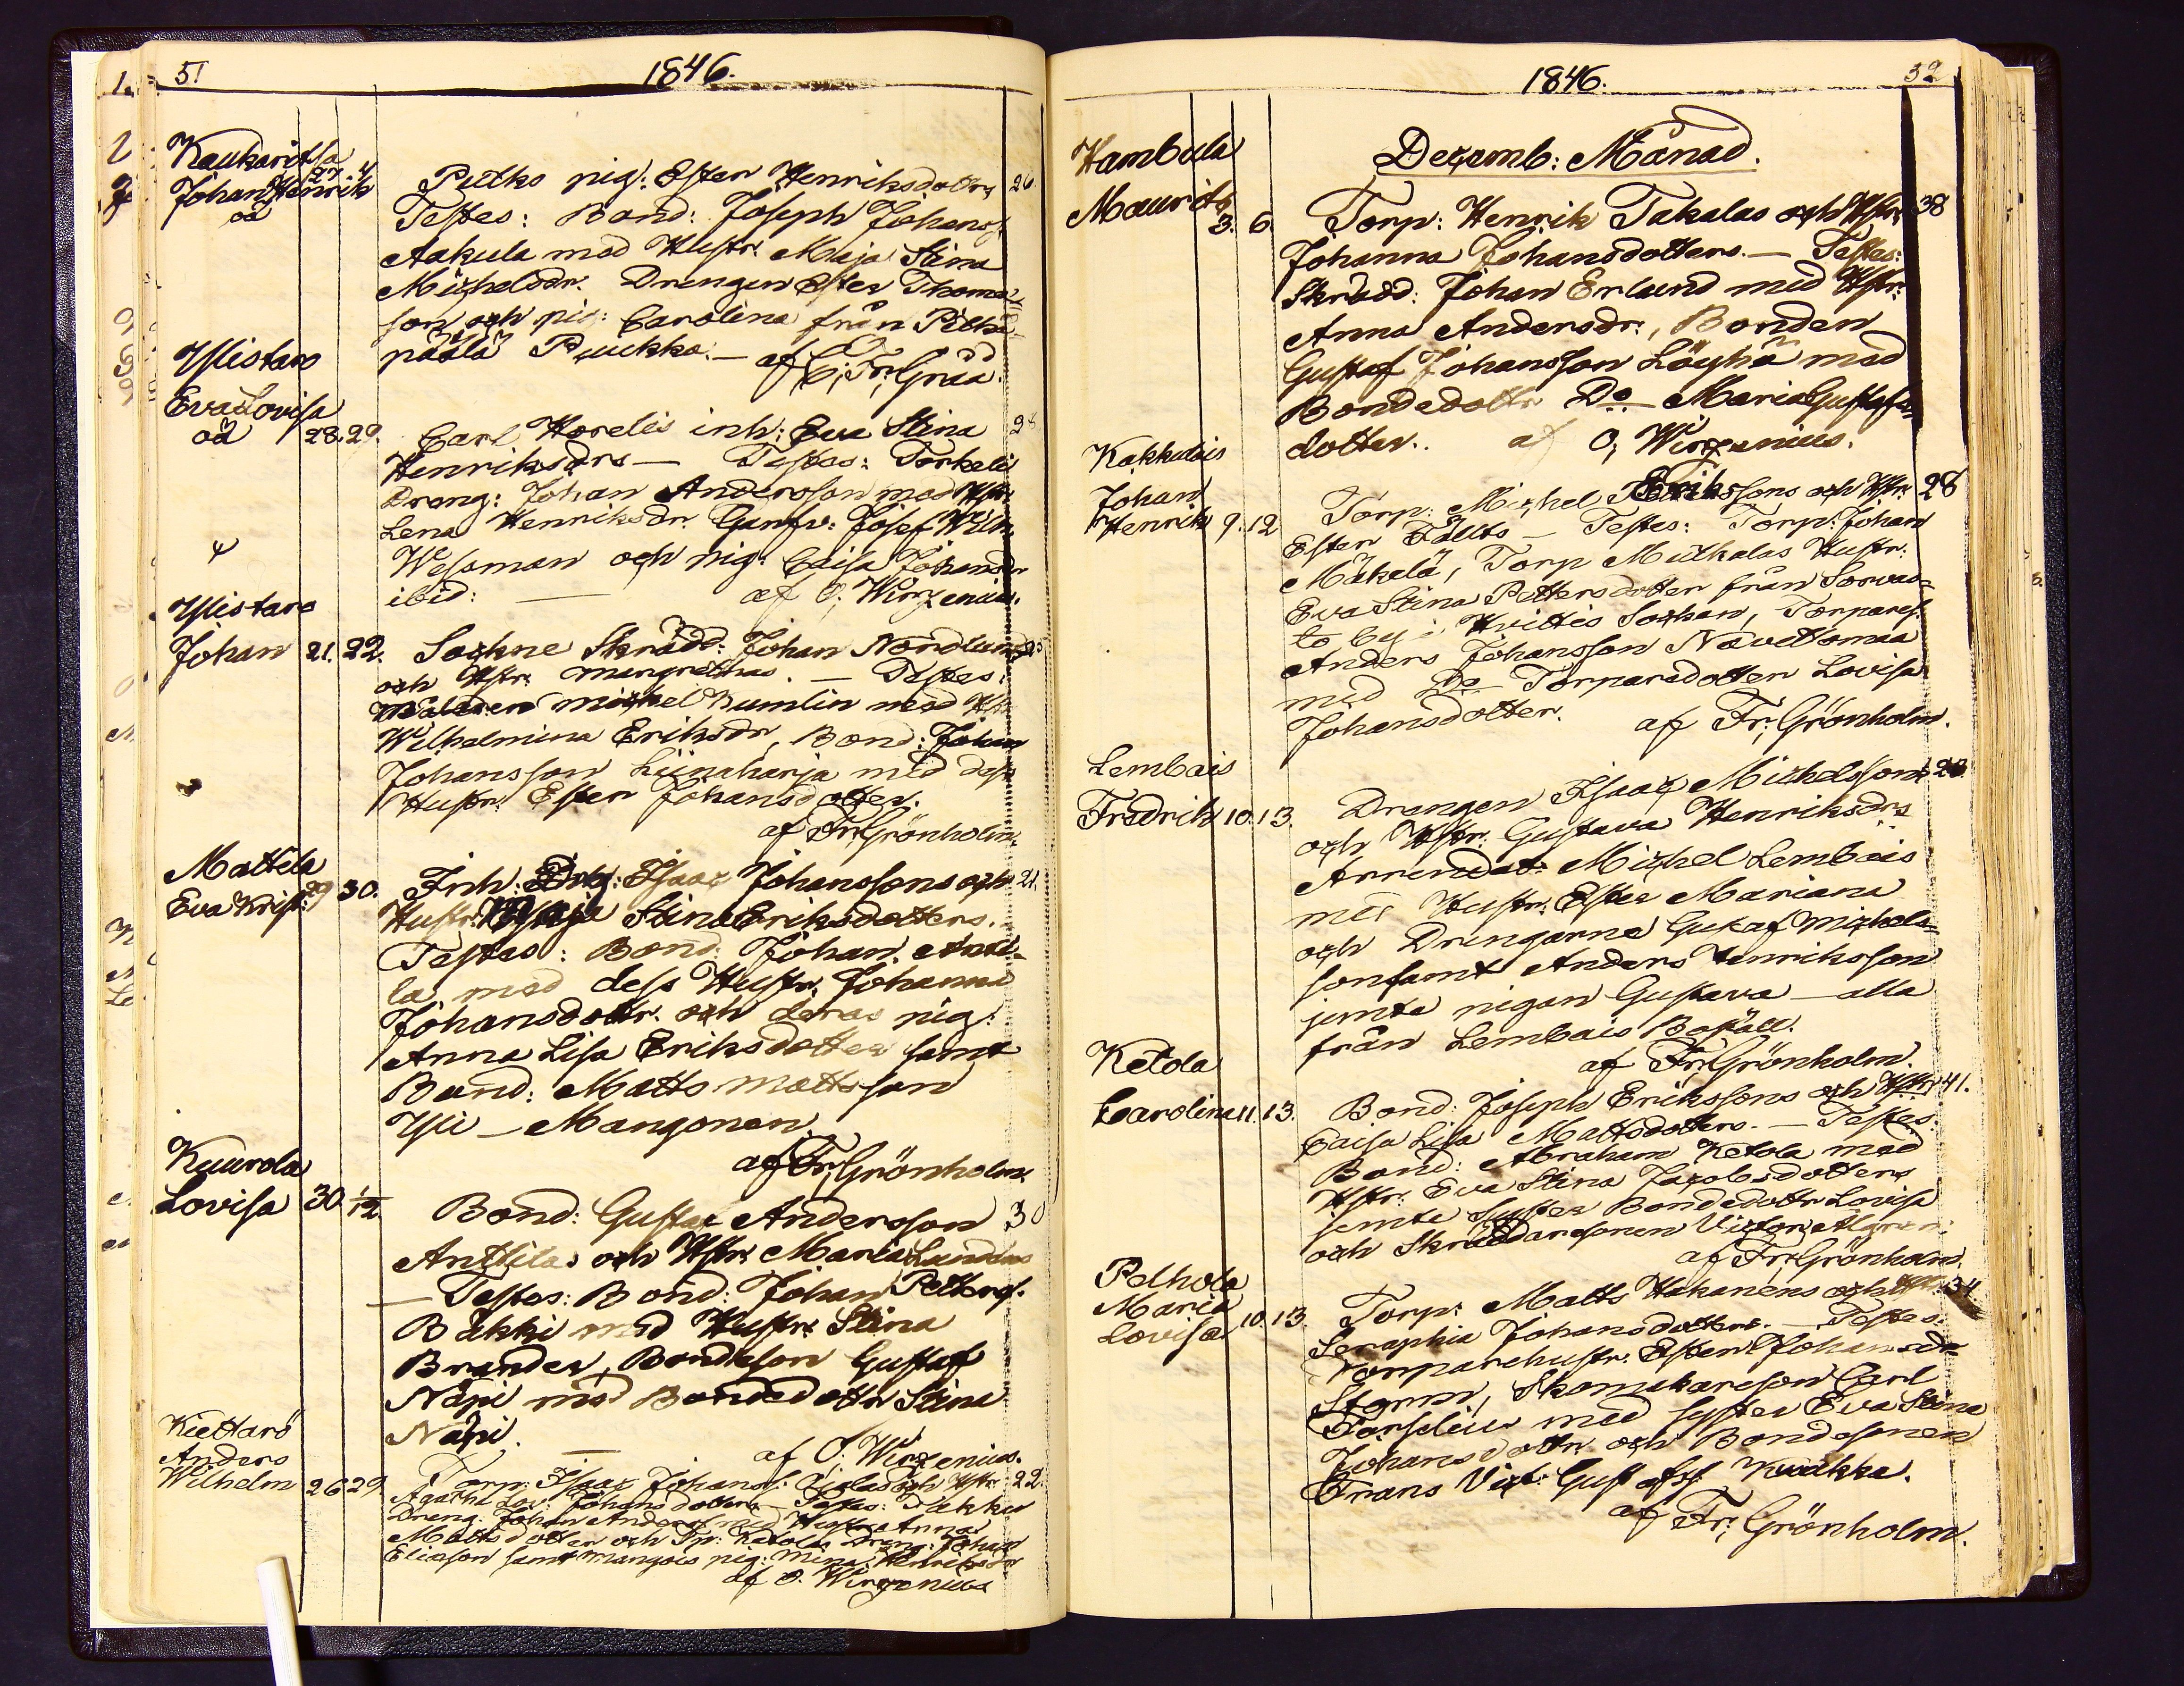 51
1846.
Kaukaritsa
27. 4
Johan Henrik
oä
Pulks pig: Ester Henriksdotters 26.
Testes: Bond: Joseph Johanss.
Aakula med Hustr. Maja Stina
Michelsdr. Drengen Ester Thomas
son och pig: Carolina från Pitkä
päälä Puukka. — af C; Fr; Gråå.
Ylistaro
Eva Lovisa
oä 28. 29.
Carl Horelis inh: Eva Stina 28
Henriksdrs — Testes: Torkelis
Dreng: Johan Andersson med Hstr.
Lena Henriksdr. Garfv: Josef Wilh.
Wessman och pig: Caisa Johansdr
ibid: — af O; Wirzenius.
Ylistaro
Johan 21. 22.
Sockne Skrädd: Johan Nordlunds
och Hstr. Margrethas. — Testes:
Målaren Michel Bumlin med Hstr
Wilhelmina Eriksdr, Bond: Johan
Johansson Liinaharja med dess
Hustr. Ester Johansdotter.
af Fr; Grönholm.
Mattila
Eva Krist: 29 30.
Inh: Drg: Isaac Johanssons och 21.
Hustr. Maja Stina Eriksdotters.
Testes: Bond: Johan Antti-
la med dess Hustr. Johanna
Johansdottr. och deras pig:
Anna Lisa Eriksdotter samt
Bond: Matts Mattsson
Yli-Mangonen.
af Fr; Grönholm.
Kuurola
Lovisa 30. 1/12.
Bond: Gustaf Andersson 30
Anttilas och Hstr. Maria Lundens
— Testes: Bond: Johan Petterss.
Bäkki med Hustr. Stina
Brander, Bondeson Gustaf
Näpi med Bondedottr Stina
Näpi. — af O; Wirzenius.
Kiettarö
Anders
Wilhelm 26 29
Torp: Isaac Johanss. och Hstr. 22.
Agatha Lov: Johansdotters — Testes:
Dreng: Johan Anderss. med Hustr. Anna
Mattsdotter och Ketola Dreng: Johan
Eliasson samt Mangois pig: Mina Henriksdr
af O. Wirzenius
1846.
52
Decemb: Månad.
Hambula
Maurits
3. 6.
Torp: Henrik Takalas och Hstr. 38
Johanna Johansdotters. — Testes:
Skrädd: Johan Erlund med Hstr:
Anna Andersdr., Bonden
Gustaf Johansson Löyhä med
Bondedottr Do Maria Gustafs-
dotter. af O; Wirzenius.
Kakkulais
Johan
Henrik 9. 12
Torp: Michel Erikssons och Hstr. 28
Ester Fällts — Testes: Torp: Johan
Mäkelä, Torp Mulkalas Hustr.
Eva Stina Pettersdotter från Sorvas-
to by i Hvittis Sockan, Torpares.
Anders Johansson Navettomaa
med Do Torparedotter Lovisa
Johansdotter. af Fr; Grönholm.
Lembois
Fredrik 10. 13.
Drengen Isaac Michelssons 28
och Hstr. Gustava Henriksdrs
Arrendat: Michel Lembois
med Hustr. Ester Mariana
och Drengarne Gustaf Michels-
son samt Anders Henriksson
jemte pigan Gustava — alla
från Lembois Boställ.
af Fr; Grönholm.
Ketola
Carolina 11. 13.
Bond: Joseph Erikssons och Hstr. 41.
Caisa Lisa Mattsdotters. — Testes.
Bond: Abraham Ketola med
Hstr. Eva Stina Jacobsdotters
jemte syster Bondedottr Lovisa
och Skräddaresonen Victor Algren.
af Fr; Grönholm.
Pelhola
Maria
Lovisa 10. 13.
Torp: Matts Hakanens och Hstr. 34
Seraphia Johansdotters. — Testes.
Torparehustr. Ester Johansdr
Storm, Skomakareson Carl
Forselius med syster Eva Stina
Johansdottr och Bondesonen
Frans Vict: Gustafss. Kuukka.
af Fr; Grönholm.